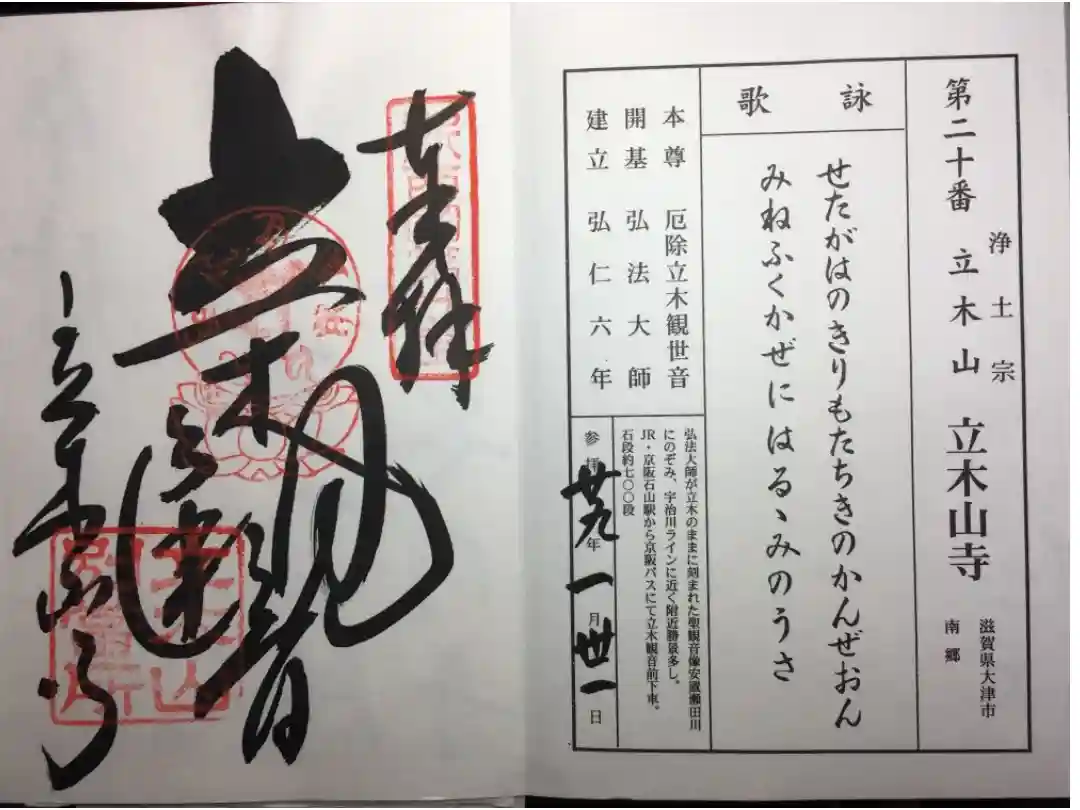 第二十番 立木山 立木山寺
浄土宗
滋賀県大津市
南郷
詠歌
せたがはのきりもたちきのかんぜおん
みねふくかぜにはるゝみのうさ
本尊 厄除立木観世音
開基 弘法大師
建立 弘仁六年
弘法大師が立木のままに刻まれた聖観音像安置瀬田川
にのぞみ、宇治川ラインに近く附近勝景多し。
JR・京阪石山駅から京阪バスにて立木観音前下車。
石段約七〇〇段
参拝 廿九年 一月 丗一日
奉拝
立木観世音
立木山寺